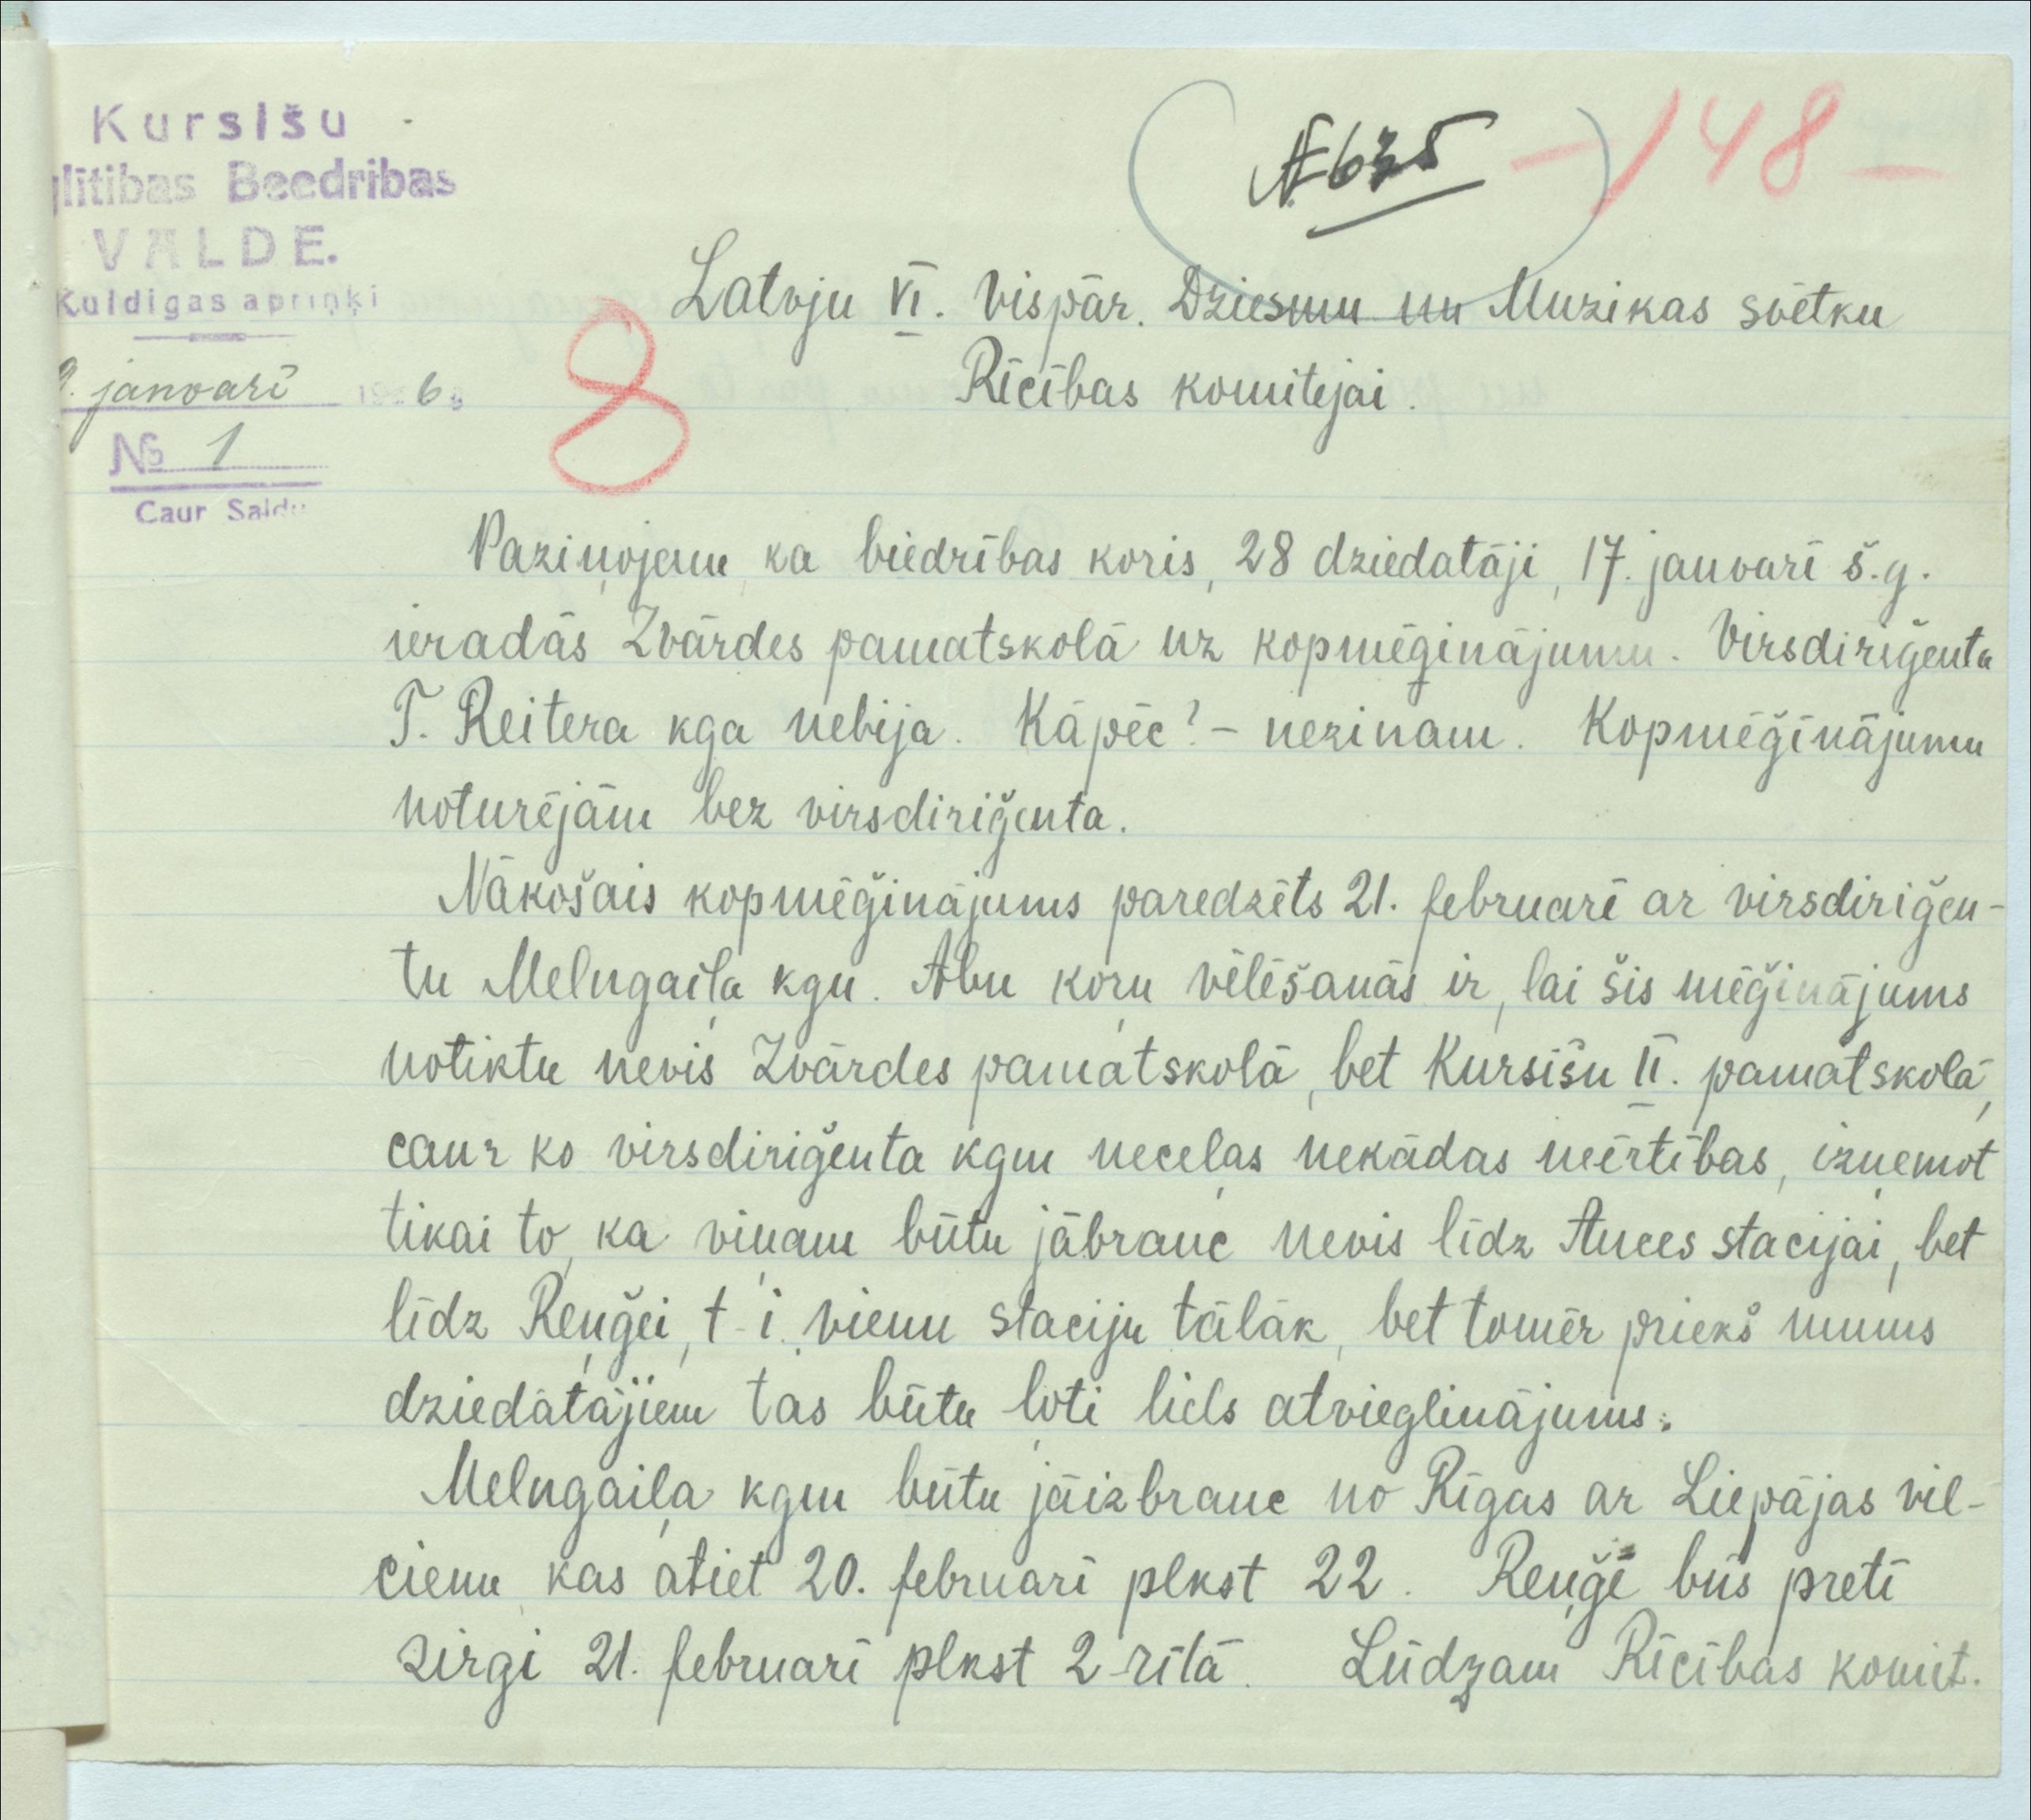 Kursišu
glītibas Beedribas
VALDE.
Kuldigas apriņķi
9. janvarī 1926 g
№ 1
Caur Saldu
№ 635 – 148 –
8
Latvju VI. Vispār. Dziesmu un Muzikas svētku
Rīcības komitejai.
Paziņojam, ka biedrības koris, 28 dziedatāji, 17. janvarī š.g.
ieradās Zvārdes pamatskolā uz kopmēģinājumu. Virsdiriģenta
T. Reitera kga nebija. Kāpēc? – nezinam. Kopmēģīnājumu
noturējām bez virsdiriģenta.
Nākošais kopmēģinājums paredzēts 21. februarī ar virsdiriģen-
tu Melngaiļa kgu. Abu koŗu vēlēšanās ir, lai šis mēģinājums
notiktu nevis Zvārdes pamatskolā, bet Kursīšu II. pamatskolā,
caur ko virsdiriģenta kgm neceļas nekādas neērtības, izņemot
tikai to, ka viņam būtu jābrauc nevis līdz Auces stacijai, bet
līdz Reņģei, t. i. vienu staciju tālāk, bet tomēr priekš mums
dziedātājiem tas būtu ļoti liels atvieglinājums.
Melngaiļa kgm būtu jāizbrauc no Rīgas ar Liepājas vil-
cienu, kas atiet 20. februarī plkst 22. Reņģē būs pretī
zirgi 21. februarī plkst 2 rītā. Lūdzam Rīcības komit.